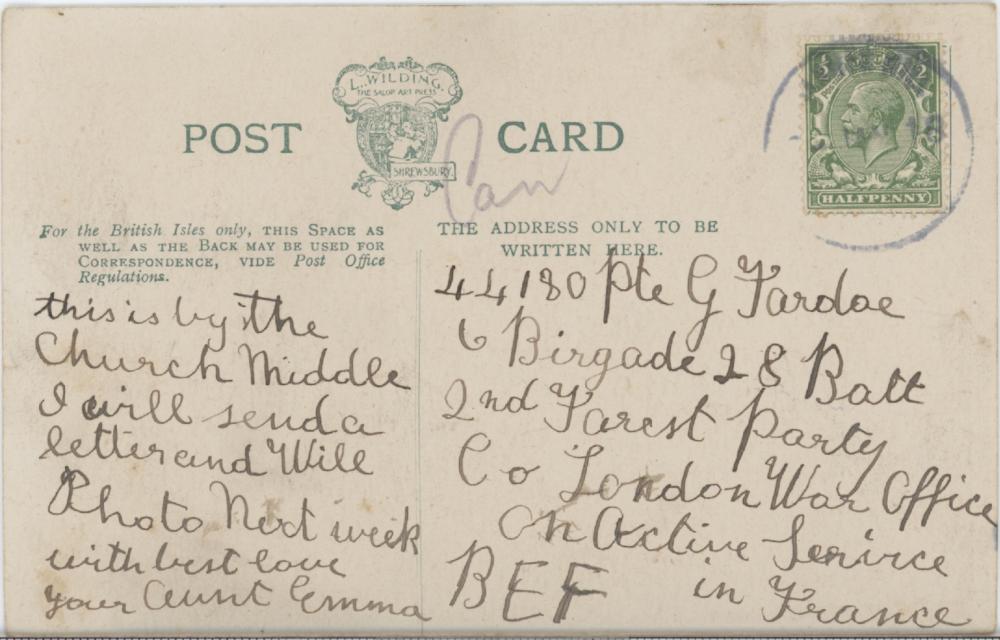 L. WILDING.
THE SALOP ART PRESS
SHREWSBURY.
POST CARD
Can
For the British Isles only, THIS SPACE AS
WELL AS THE BACK MAY BE USED FOR
CORRESPONDENCE, VIDE Post Office
Regulations.
this is by the
Church Middle
I will send a
letter and Will
Photo Next week
with best love
your Aunt Emma
THE ADDRESS ONLY TO BE
WRITTEN HERE.
44180 Pte G Fardoe
6 Birgade 28 Batt
2nd Farest Party
Co London War Office
On Active Servirce
BEF in France
½ ½
HALFPENNY